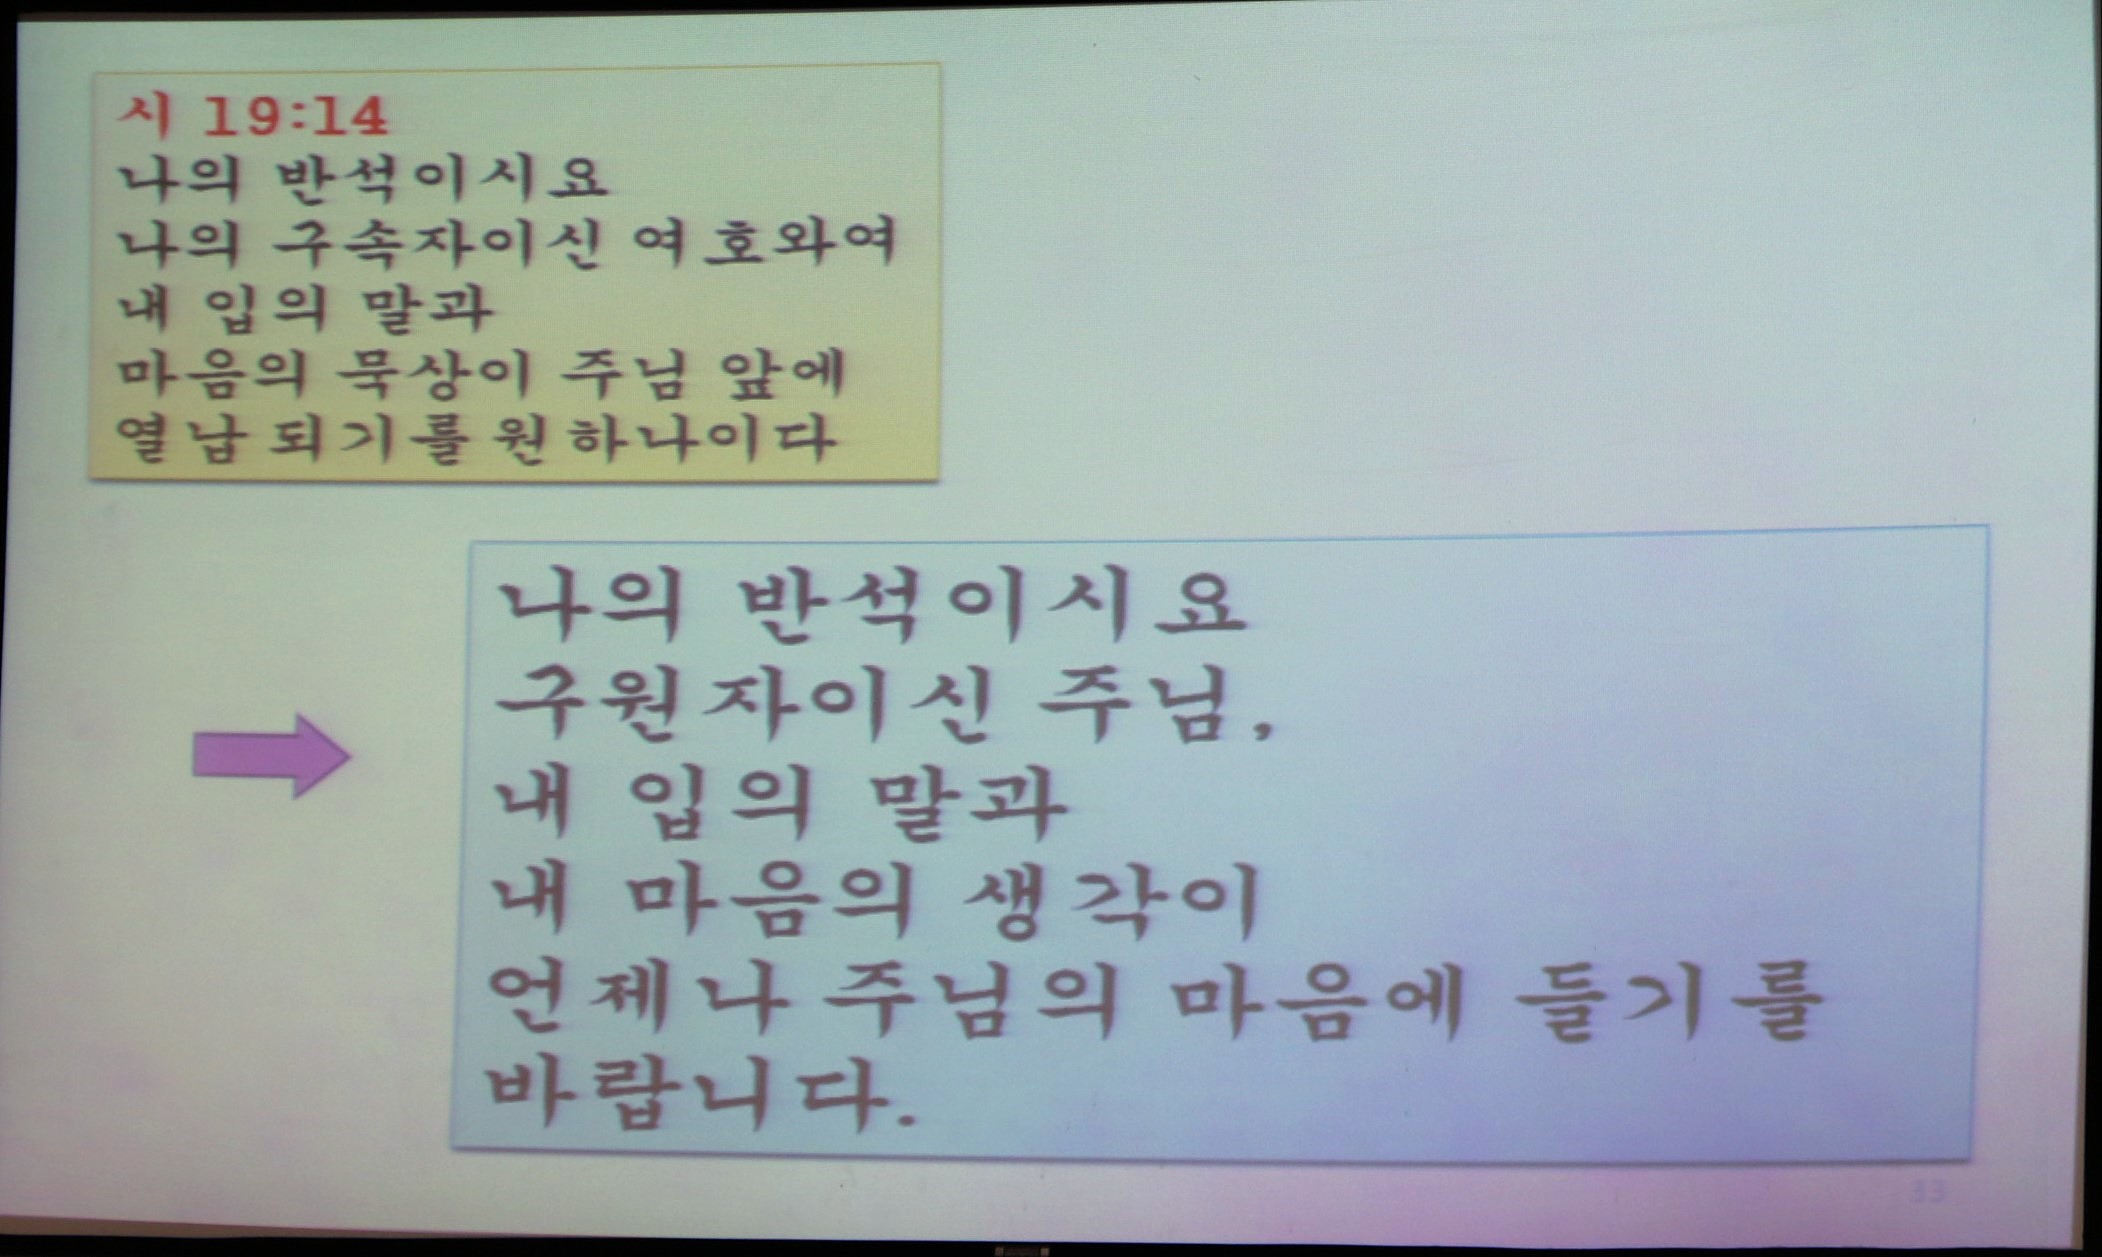 시 19:14
나의 반석이시요
나의 구속자이신 여호와여
내 입의 말과
마음의 묵상이 주님 앞에
열납되기를 원하나이다
나의 반석이시요
구원자이신 주님,
내 입의 말과
내 마음의 생각이
언제나 주님의 마음에 들기를
바랍니다.
33